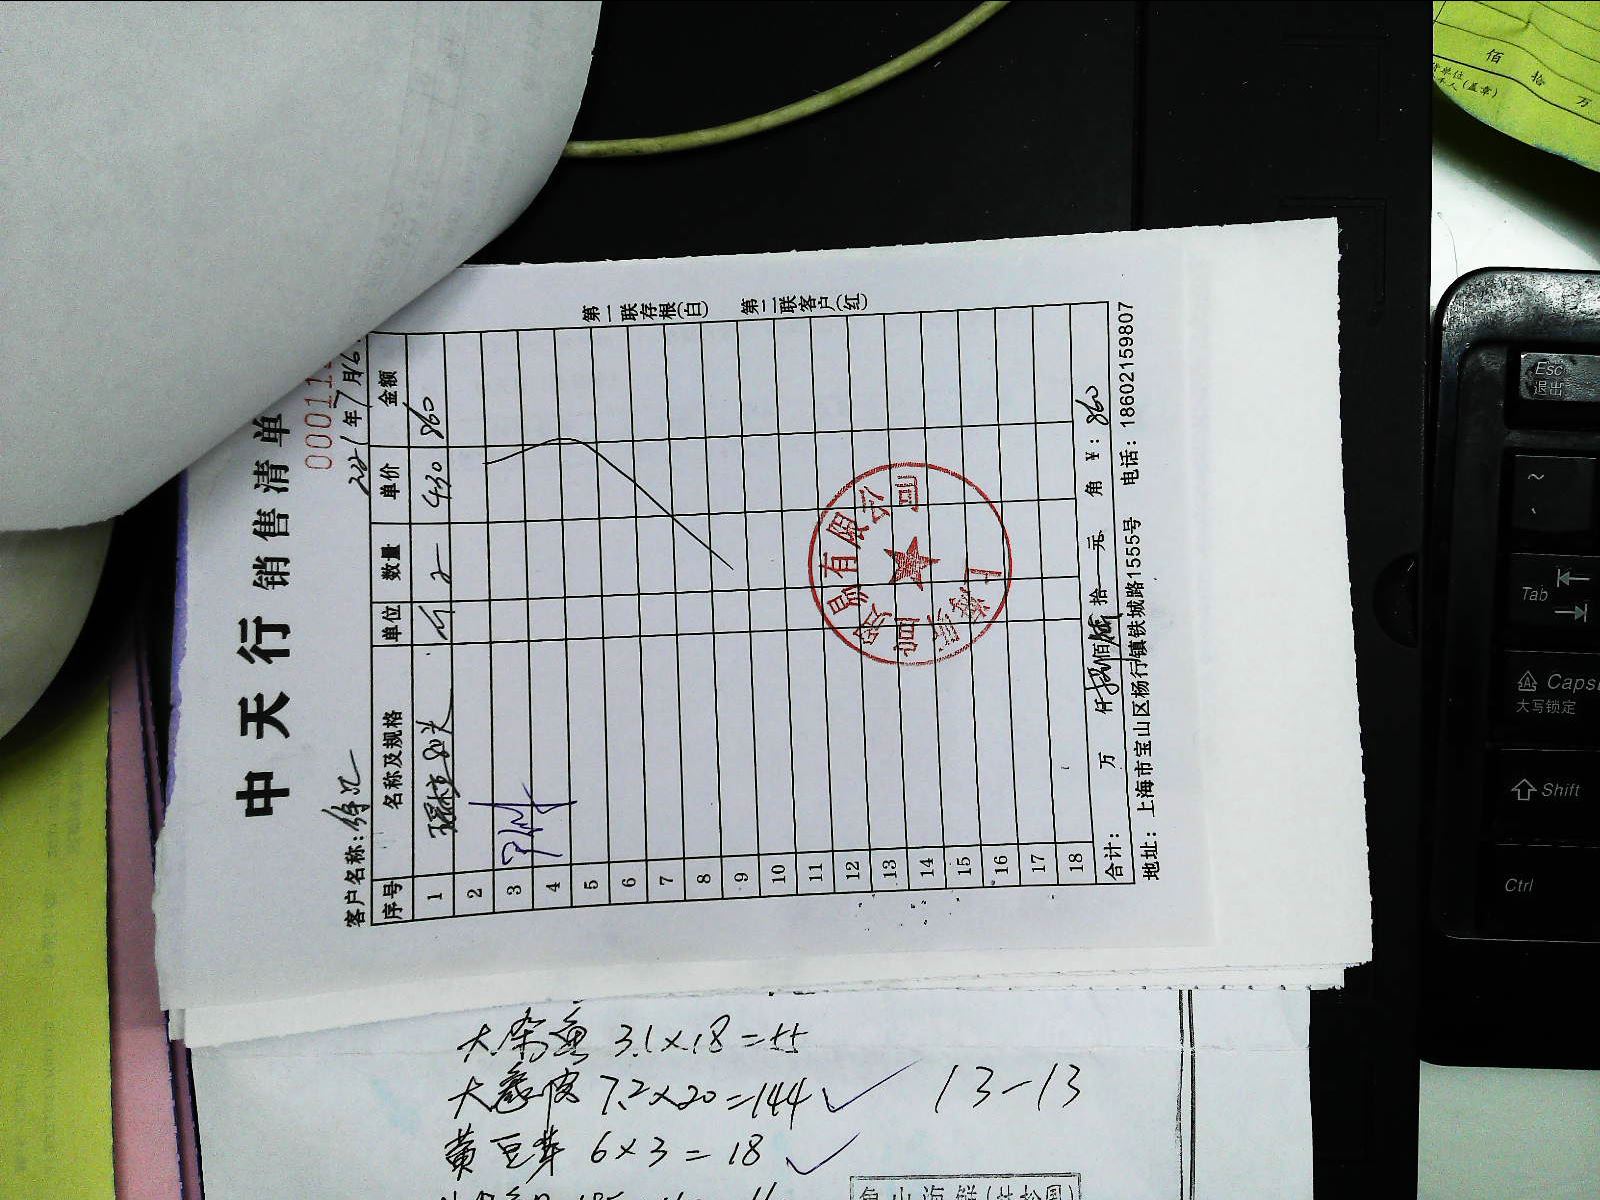 中天行销售清单
000111
客户名称:徐汇
年7月16
序号 名称及规格 单位 数量 单价 金额
1 斤 2 430 860
2
3
4
5
6
7
8
9
10
11
12
13
14
15
16
17
18
合计: 万 仟 捌 佰 陆 拾 元 角 ¥:860
地址:上海市宝山区杨行镇铁城路1555号 电话:18602159807
第一联存根(白) 第二联客户(红)
上海 贸易有限公司
大杂鱼 3.1×18=55
大卷皮 7.2×20=144
黄豆芽 6×3=18
13-13
佰 拾 万
(盖章)
Esc
退出
~
Tab
Caps
大写锁定
Shift
Ctrl